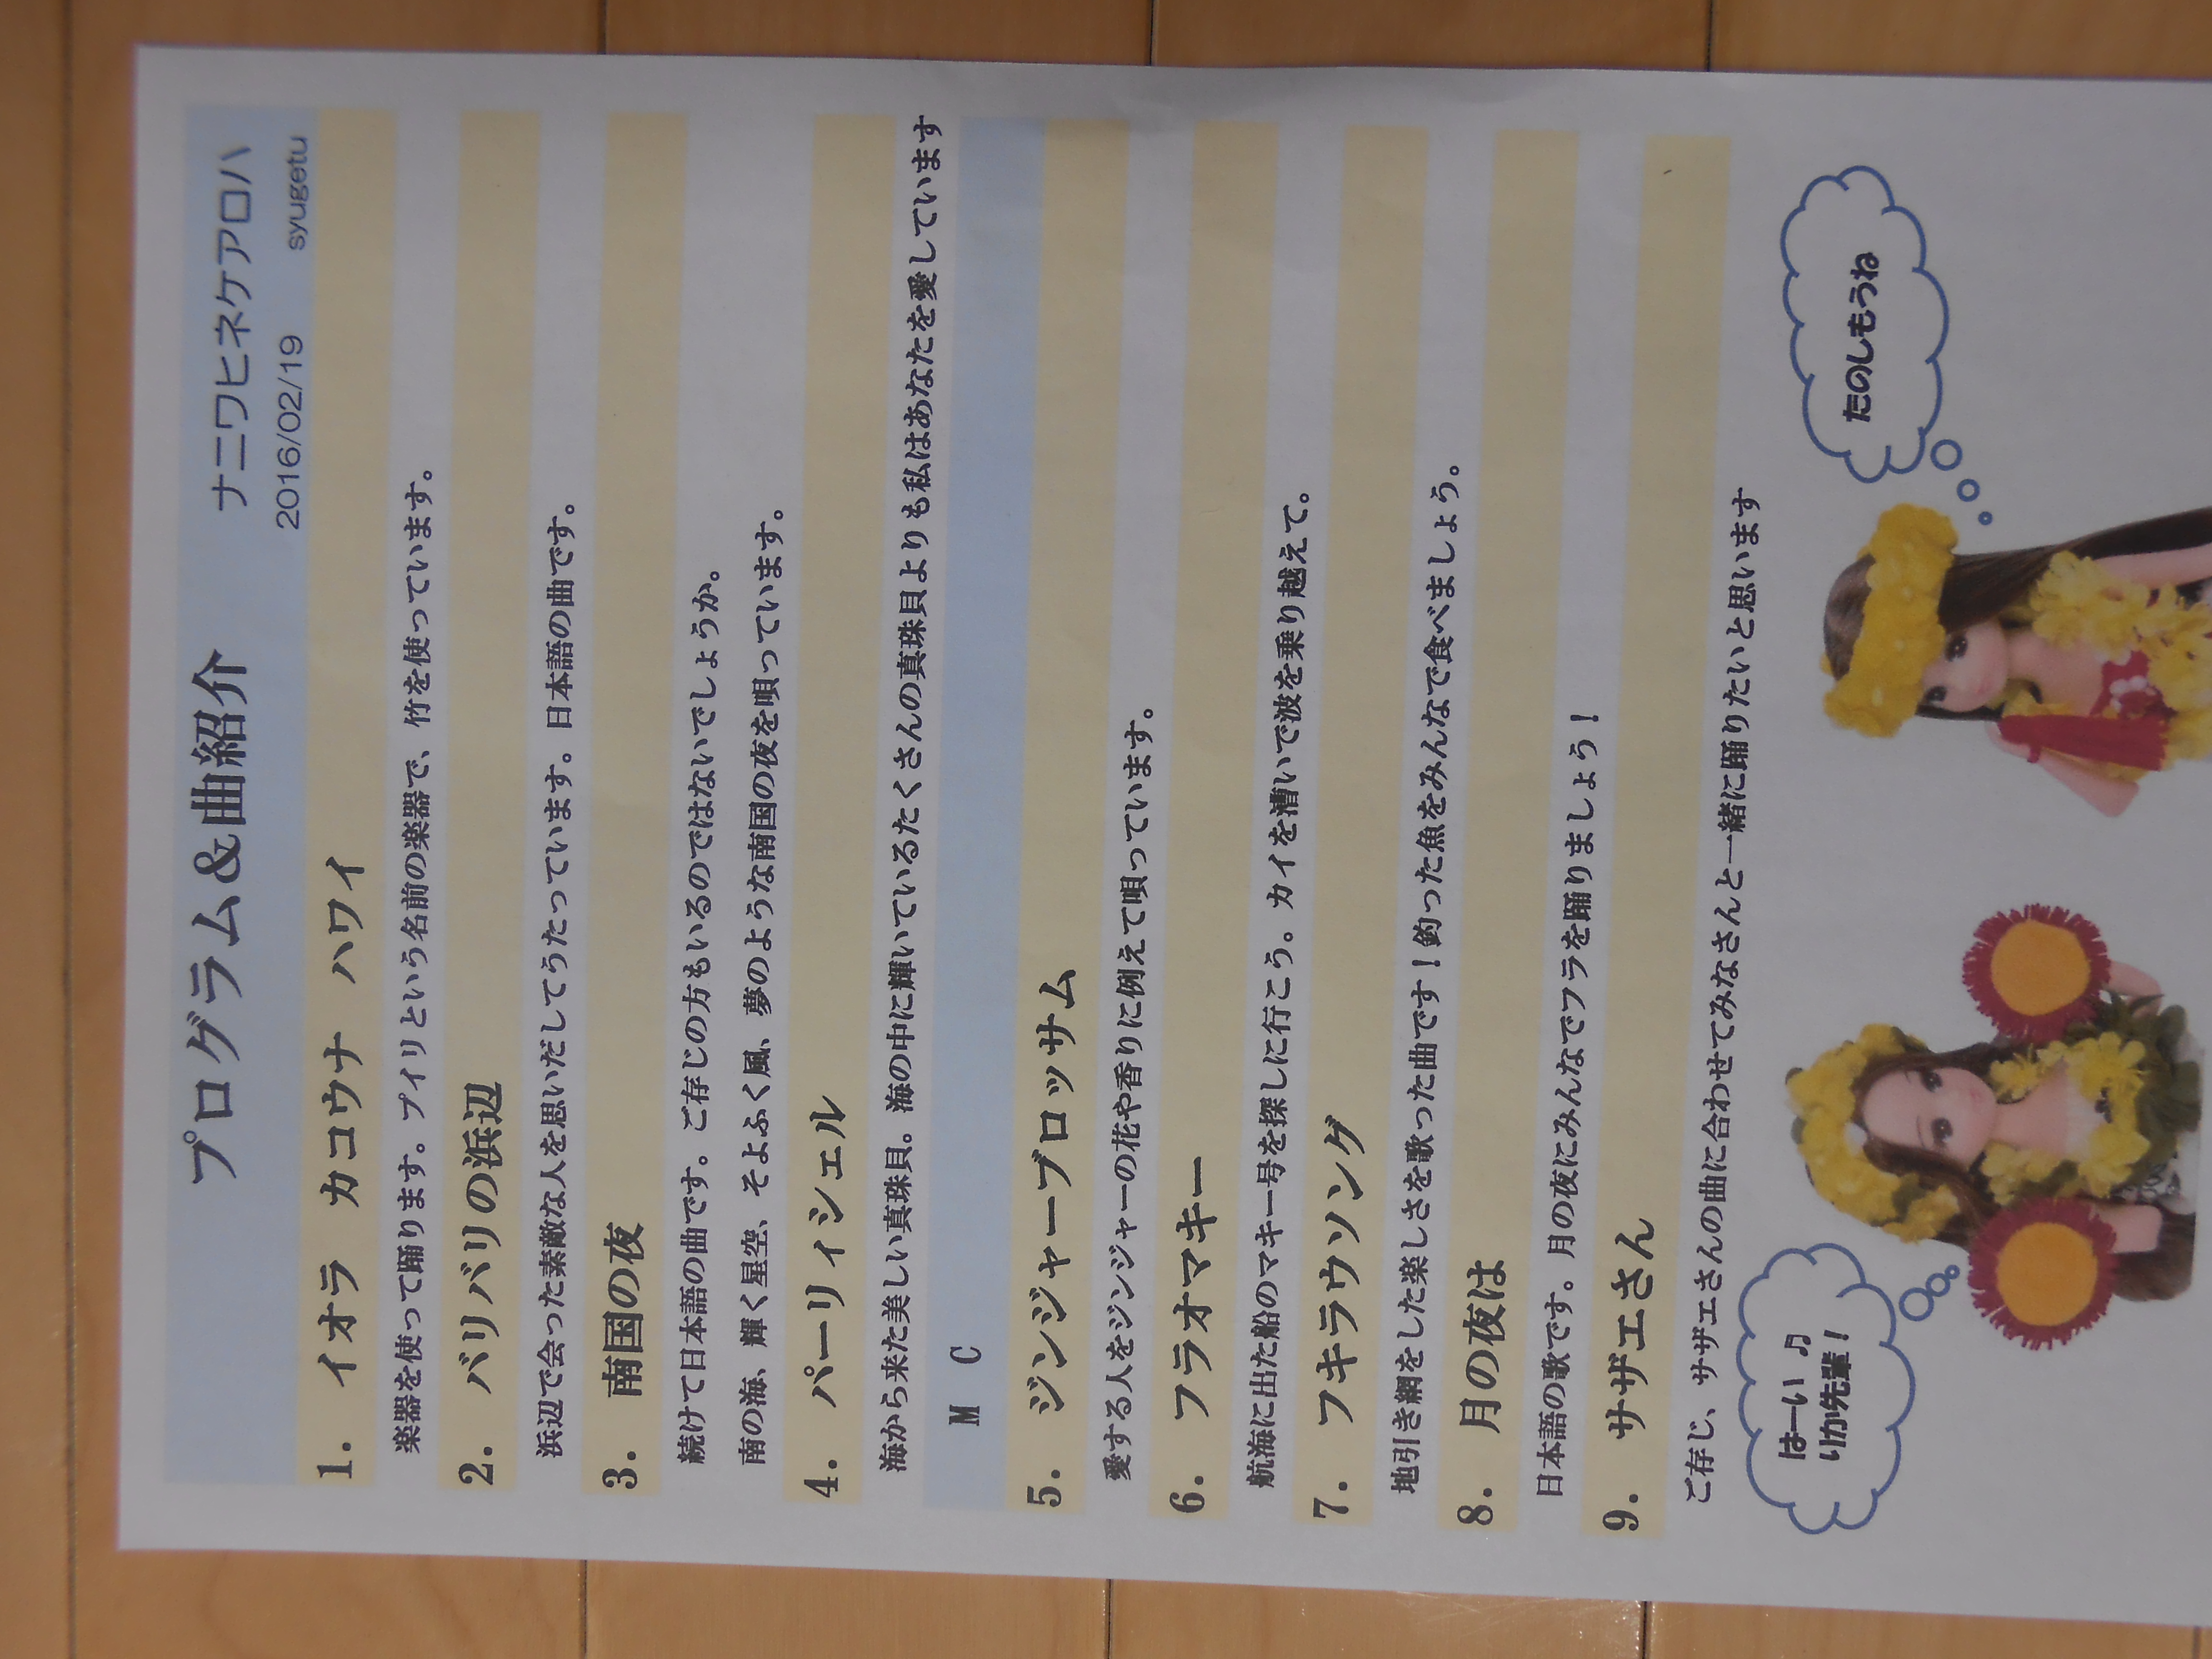 プログラム&曲紹介
ナニワヒネケアロハ
2016/02/19 syugetu
1. イオラ カコウナ ハワイ
楽器を使って踊ります。プイリという名前の楽器で、竹を使っています。
2. バリバリの浜辺
浜辺で会った素敵な人を思いだしてうたっています。日本語の曲です。
3. 南国の夜
続けて日本語の曲です。ご存じの方もいるのではないでしょうか。
南の海、輝く星空、そよふく風、夢のような南国の夜を唄っています。
4. パーリィシェル
海から来た美しい真珠貝。海の中に輝いているたくさんの真珠貝よりも私はあなたを愛しています
M C
5. ジンジャーブロッサム
愛する人をジンジャーの花や香りに例えて唄っています。
6. フラオマキー
航海に出た船のマキー号を探しに行こう。カイを漕いで波を乗り越えて。
7. フキラウソング
地引き網をした楽しさを歌った曲です！釣った魚をみんなで食べましょう。
8. 月の夜は
日本語の歌です。月の夜にみんなでフラを踊りましょう！
9. サザエさん
ご存じ、サザエさんの曲に合わせてみなさんと一緒に踊りたいと思います
はーい♫
りか先輩！
たのしもうね